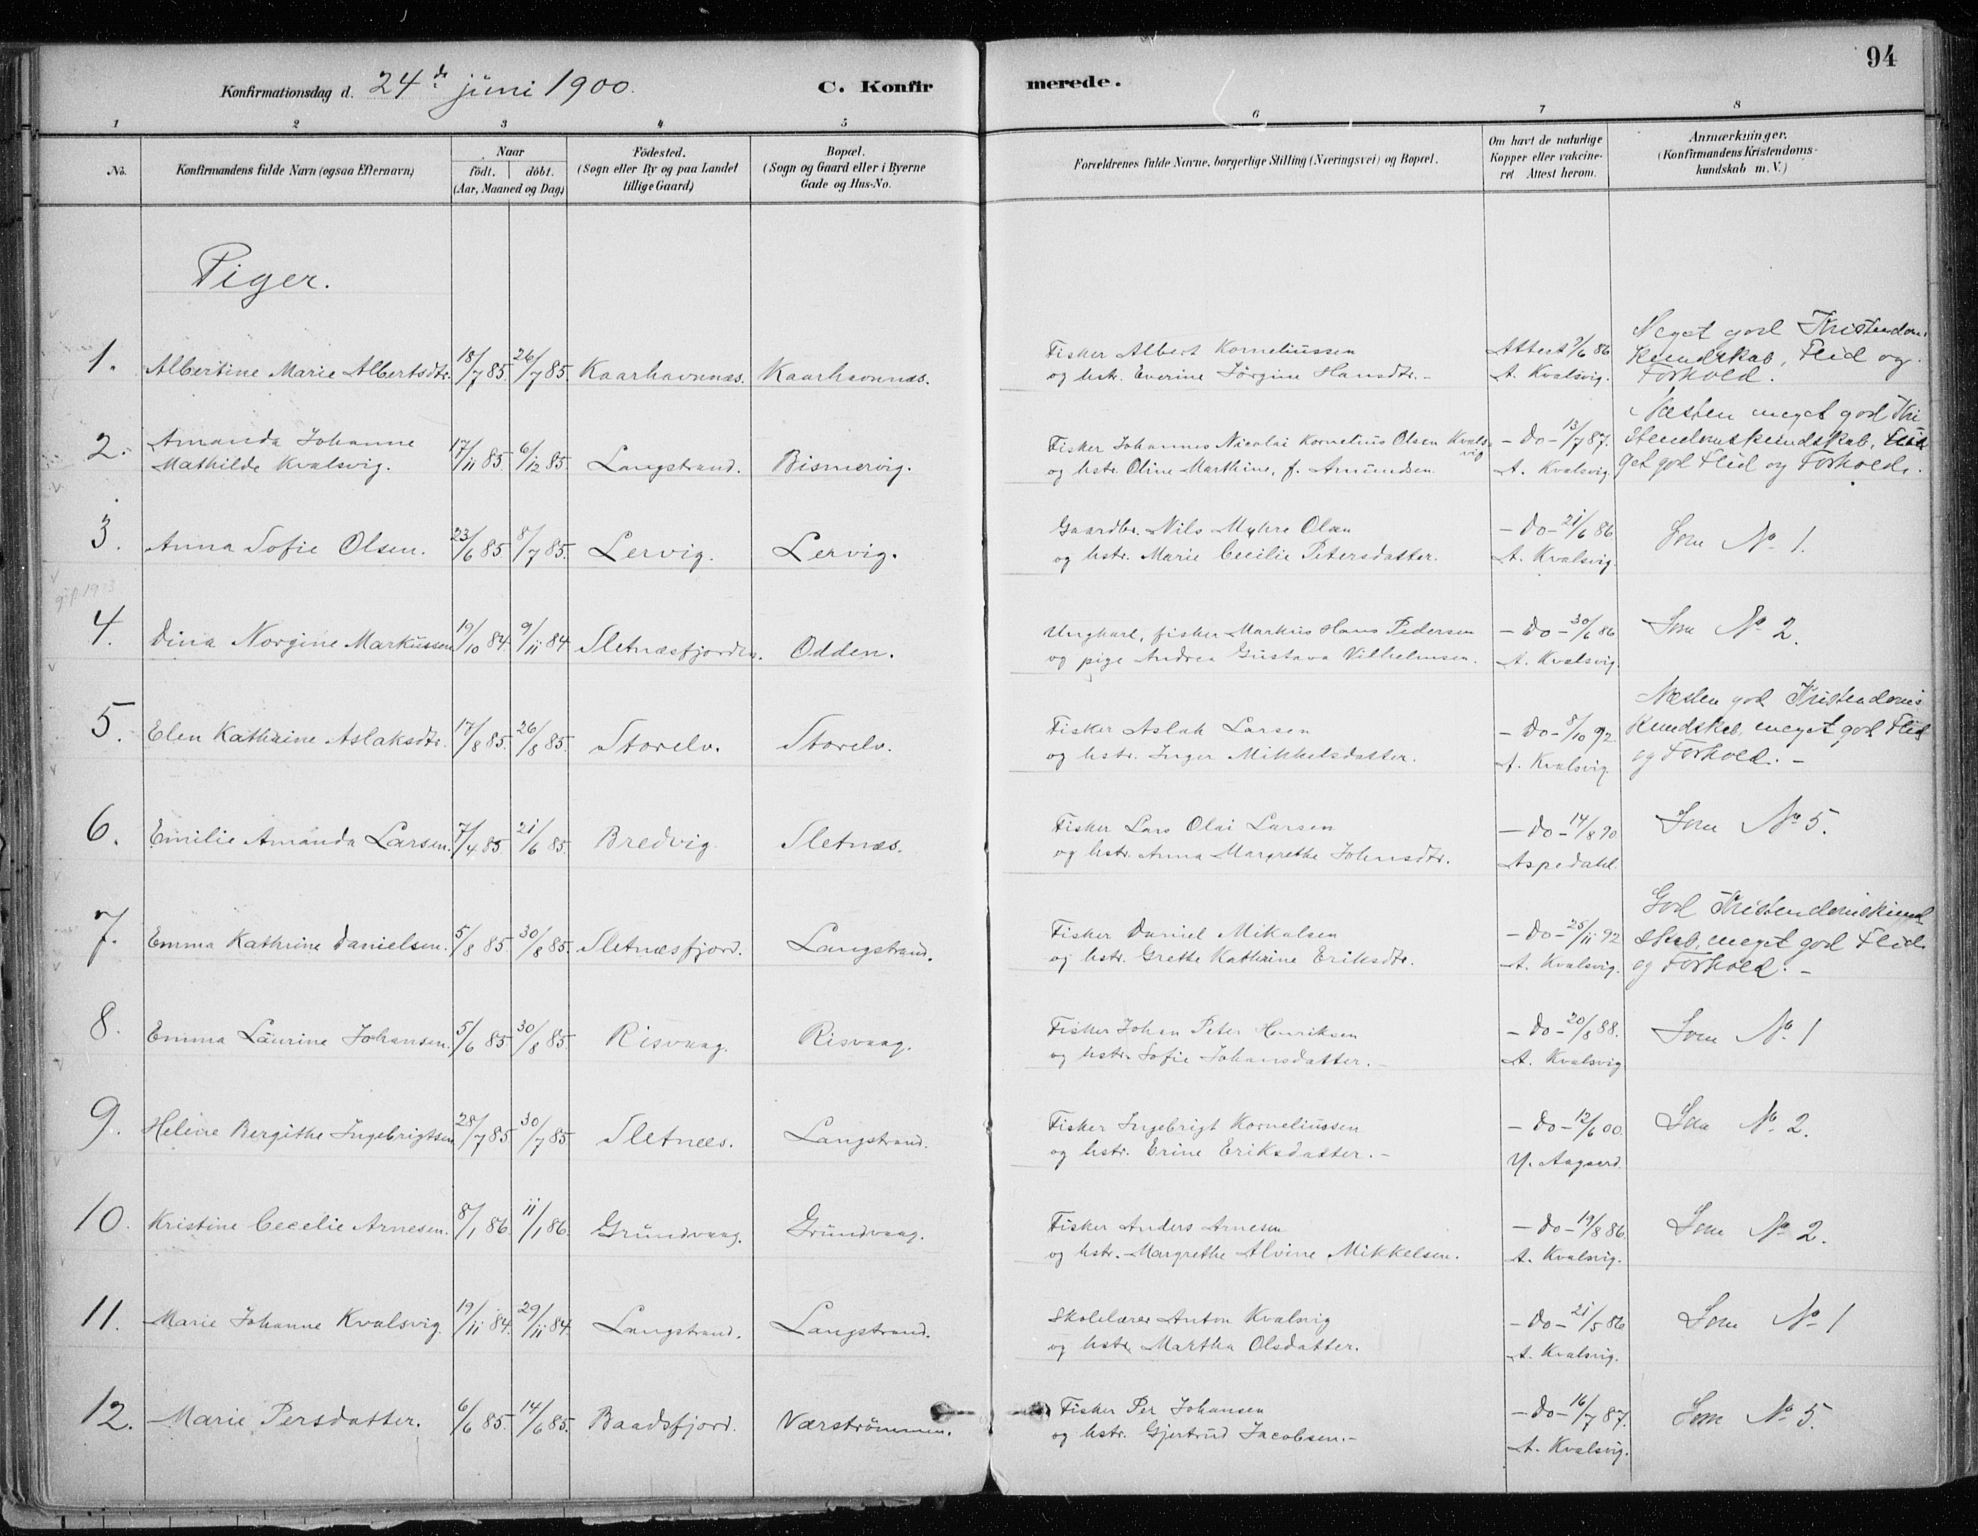 94
Konfirmationsdag d. 24de juni 1900. C. Konfirmerede.
1 2 3 4 5 6 7 8
No. Konfirmandens fulde Navn (ogsaa Efternavn) Naar født. døbt. (Aar, Maaned og Dag) Födested. (Sogn eller By og paa Landet tillige Gaard) Bopæl. (Sogn og Gaard eller i Byerne Gade og Hus-No. Forældrenes fulde Navne, borgerlige Stilling (Næringsvei) og Bopæl. Om havt de naturlige Kopper eller vakcineret Attest herom. Anmærkninger. (Konfirmandens Kristendomskundskab m. V.)
Piger.
1. Albertine Marie Albertsdtr. 18/7 85. 26/7 85. Kaarhavnnæs. Kaarhavnnæs. Fisker Albert Korneliussen og hstr. Everine Jörgine Hansdtr. - Attest 9/6 86 A. Kvalsvig. Meget god Kristendoms Kundskab, Flid og Forhold.
2. Amanda Johanne Mathilde Kvalsvig. 17/11 85. 6/12 85. Langstrand. Bismervig. Fisker Johannes Nicolai Kornelius Olsen Kvalsvig og hstr. Oline Marthine, f. Amundsen - Do - 13/7 87. A. Kvalsvig Næsten meget god Kristendomskundskab, get god Flid og Forhold.
3. Anna Sofie Olsen. 23/6 85 8/7 85. Lervig. Lervig. Gaardbr. Nils Myhre Olsen og hstr. Marie Cecilie Petersdatter. - Do - 21/6 86 A. Kvalsvig. Som No. 1.
4. Dina Norgine Markussen 19/10 84. 9/11 84. Sletnæsfjorden. Odden. Ungkarl, fisker Markus Hans Pedersen og pige Andrea Gustava Vilhelmsen. - Do - 30/6 86 A. Kvalsvig. Som No. 2.
5. Elen Kathrine Aslaksdtr. 17/8 85. 26/8 85. Storelv. Storelv. Fisker Aslak Larsen og hstr. Inger Mikkelsdatter. - Do - 8/10 92. A. Kvalsvig. Næsten god Kristendoms Kundskab, meget god Flid og Forhold. -
6. Emilie Amanda Larsen. 7/4 85 21/6 85. Bredvig. Sletnæs. Fisker Lars Olai Larsen og hstr. Anna Margrethe Johnsdtr. - Do - 14/8 90 Aspedahl. Som No. 5.
7. Emma Kathrine Danielsen. 5/8 85. 30/8 85. Sletnæsfjord. Langstrand. Fisker Daniel Mikalsen og hstr. Grethe Kathrine Eriksdtr. - Do - 25/11 92 A. Kvalsvig. God Kristendomskundskab, meget god Flid og Forhold. -
8. Emma Laurine Johansen. 5/6 85 30/8 85. Risvaag. Risvaag. Fisker Johan Peter Henriksen og hstr. Sofie Johansdatter. - - Do - 20/8 88. A. Kvalsvig Som No. 1
9. Heline Bergithe Ingebrigtsen 28/7 85 30/7 85. Sletnæs. Langstrand. Fisker Ingebrigt Korneliussen og hstr. Erine Eriksdatter. - - Do - 12/6 00. Y. Aagaard. Som No. 2.
10. Kristine Cecelie Arnesen. 8/1 86. 11/1 86. Grundvaag. Grundvaag. Fisker Anders Arnesen og hstr. Margrethe Alvine Mikkelsen. - Do - 19/8 86. A. Kvalsvig. Som No. 2.
11. Marie Johanne Kvalsvig 19/11 84. 29/11 84. Langstrand. Langstrand. Skolelærer Anton Kvalsvig og hstr. Martha Olsdatter. - Do - 21/5 86 A. Kvalsvig. Som No. 1
12. Marie Persdatter. 6/6 85. 14/6 85. Baadsfjord. Værströmmen. Fisker Per Johansen og hstr. Gjertrud Jacobsen. - - Do - 16/7 87. A. Kvalsvig. Som No. 5.